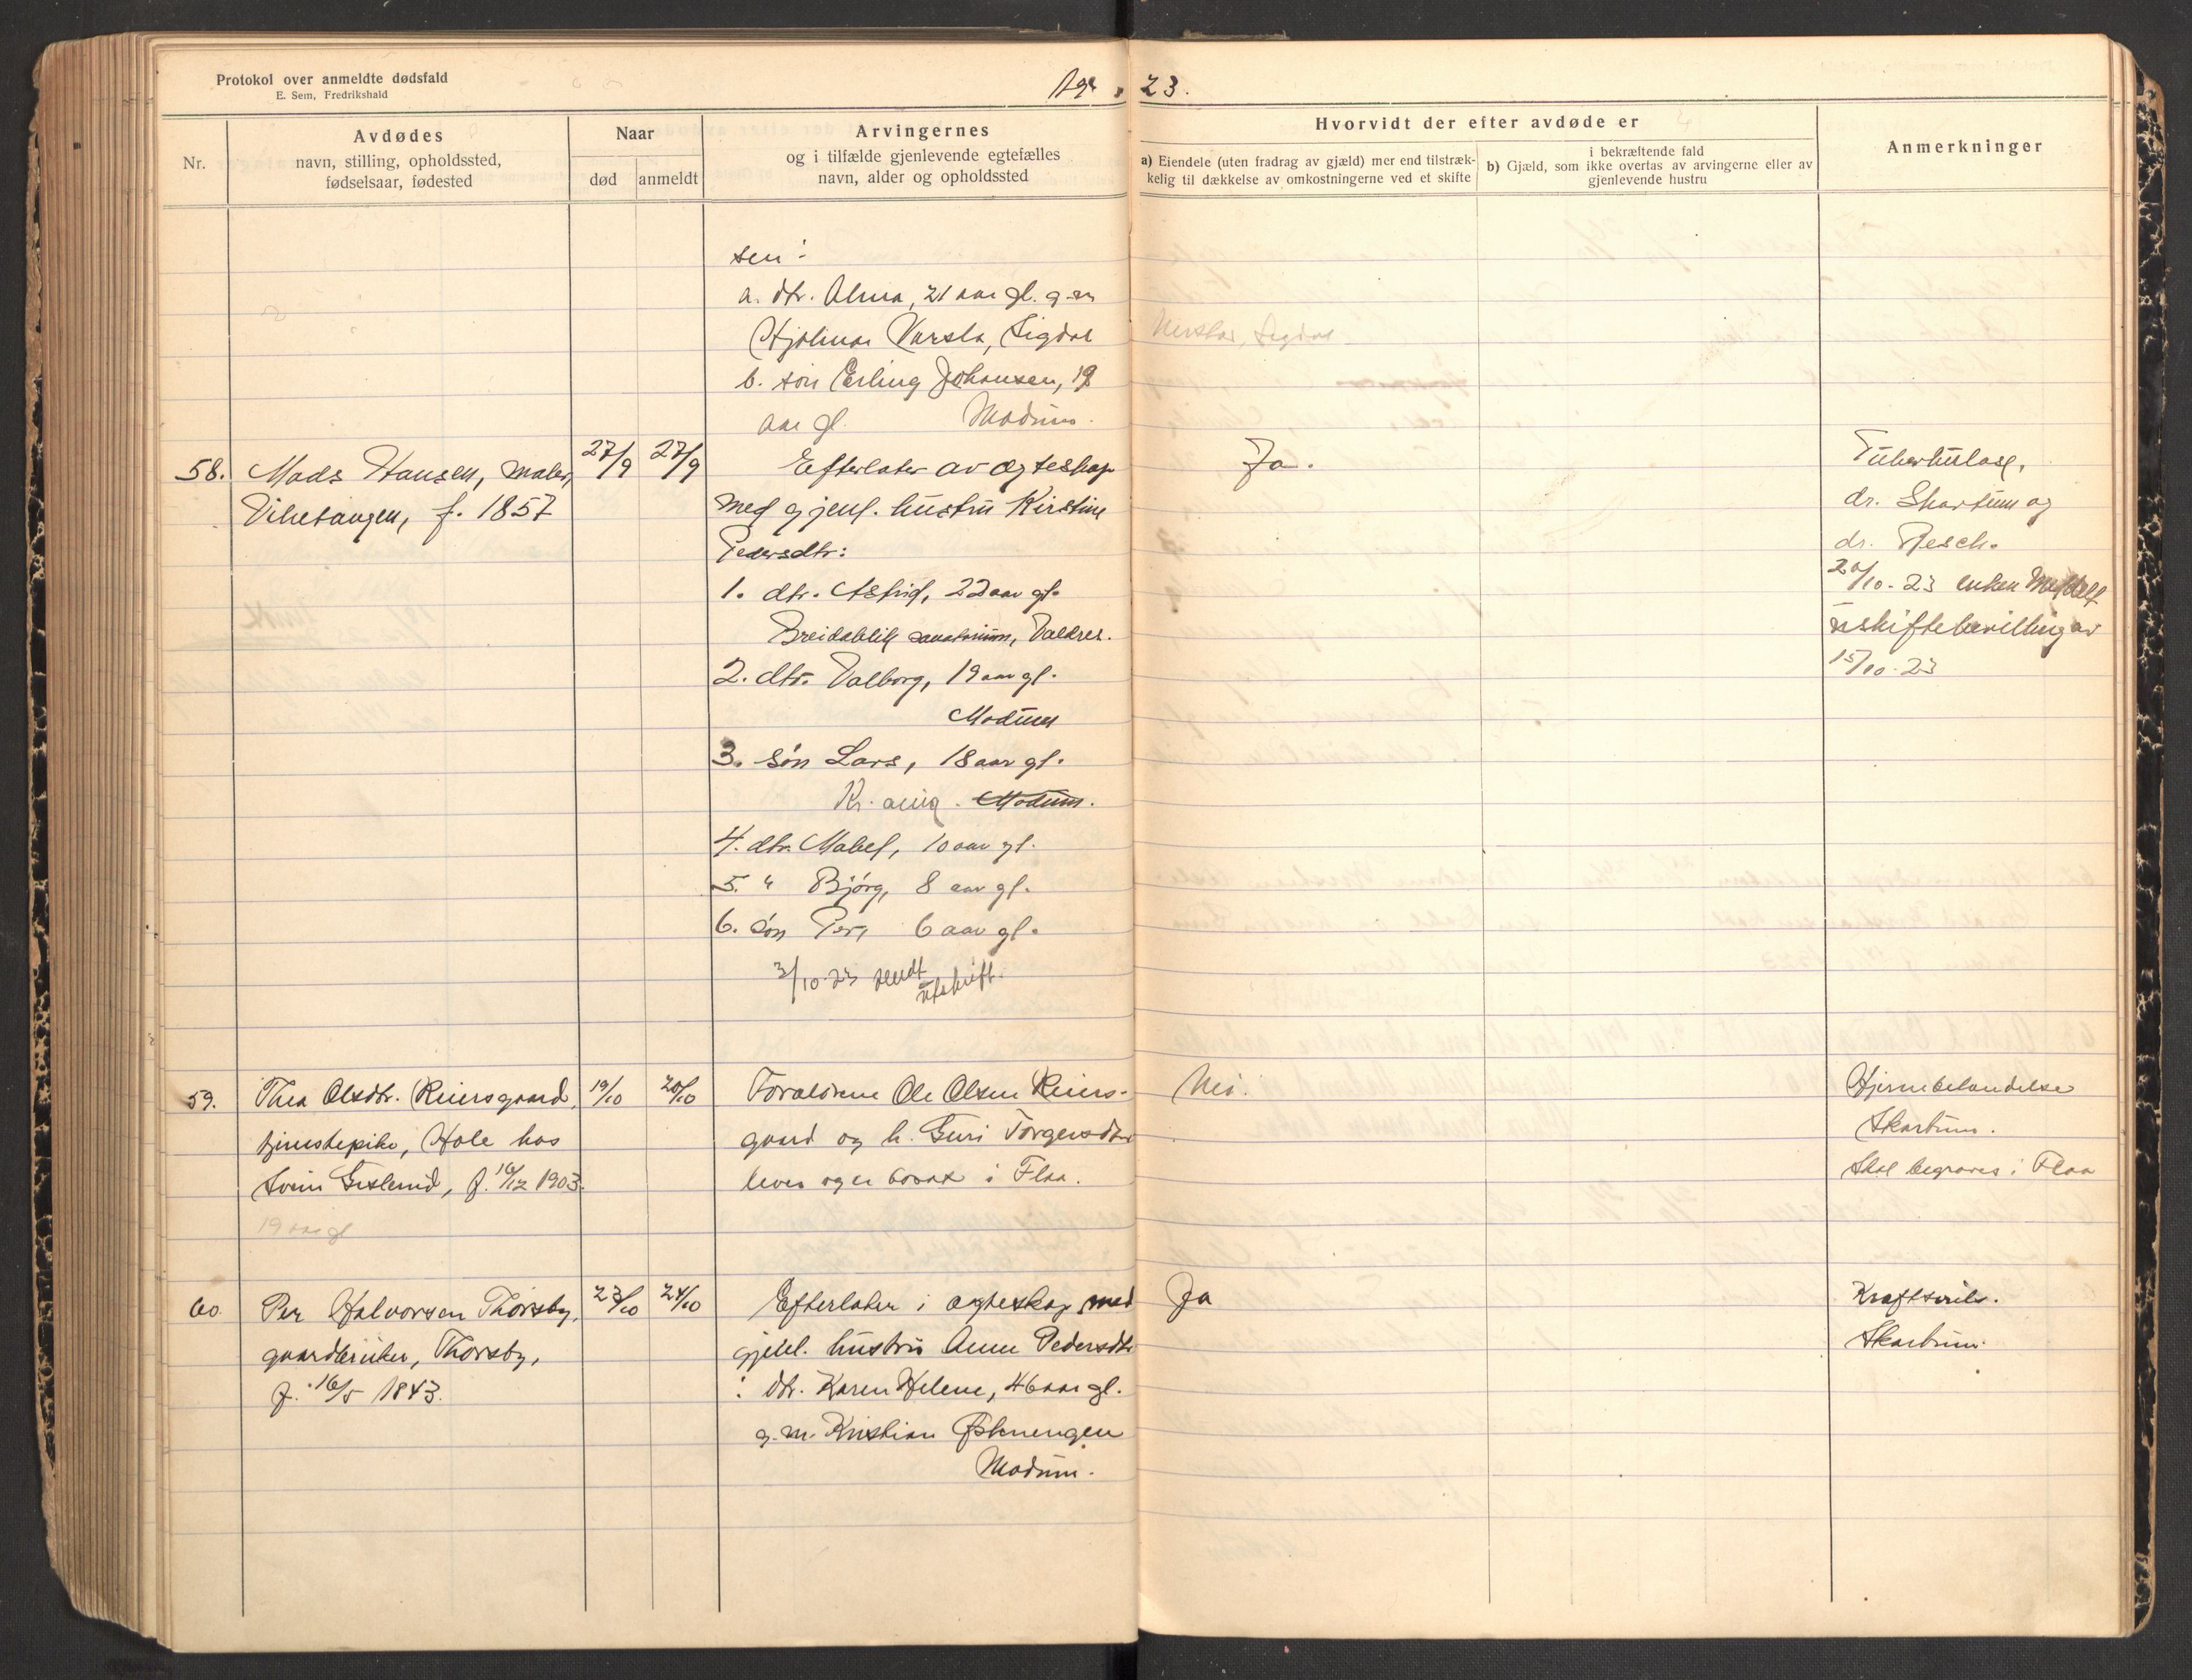 Protokol over anmeldte dødsfald
E. Sem, Fredrikshald
23.
Nr.
Avdødes
navn, stilling, opholdssted,
fødselsaar, fødested
Naar
død
anmeldt
Arvingernes
og i tilfælde gjenlevende egtefælles
navn, alder og opholdssted
Hvorvidt der efter avdøde er
a) Eiendele (uten fradrag av gjæld) mer end tilstræk-
kelig til dækkelse av omkostningerne ved et skifte
i bekræftende fald
b) Gjæld, som ikke overtas av arvingerne eller av
gjenlevende hustru
Anmerkninger
sen:
a. dtr. Alma, 21 aar gl. g. m
Hjalmar Varslo, Sigdal
Sigdal
b. søn Erling Johansen, 19
aar gl. Modum.
58. Mads Hansen, maler,
Vikesangen, f. 1857
27/9 27/9
Efterlater av egteskap
med gjenl. hustru Kirstine
Pedersdtr:
1. dtr. Astrid, 22 aar gl.
Breidablik sanatorium, Valdres.
2. dtr. Valborg, 19 aar gl.
Modum
3. søn Lars, 18 aar gl.
Kr.ania. Modum.
4. dtr. Mabel, 10 aar gl.
5. " Bjørg, 8 aar gl.
6. søn Per, 6 aar gl.
3/10-23 sendt
utskrift.
Ja.
Tuberkulose,
dr. Skartum og
dr. Resch.
20/10-23 enken meddelt
uskiftebevilling av
15/10-23
59. Thea Olsdtr. Reiersgaard,
tjenestepike, Hole hos
Svein Gislerud, f. 16/12 1903.
19 aar gl
19/10 20/10
Forældrene Ole Olsen Reiers-
gaard og h. Guri Torgersdtr
lever og er bosat i Flaa.
Nei.
Hjernebetændelse
Skartum.
Skal begraves i Flaa
60. Per Halvorsen Thorsby,
gaardbruker, Thorsby,
f. 16/5 1843.
23/10 24/10
Efterlater i egteskap med
gjenl. hustru Anne Pedersdtr
: dtr. Karen Helene, 46 aar gl.
g. m. Kristian Østenengen
Modum.
Ja
Kraftsvik.
Skartum.